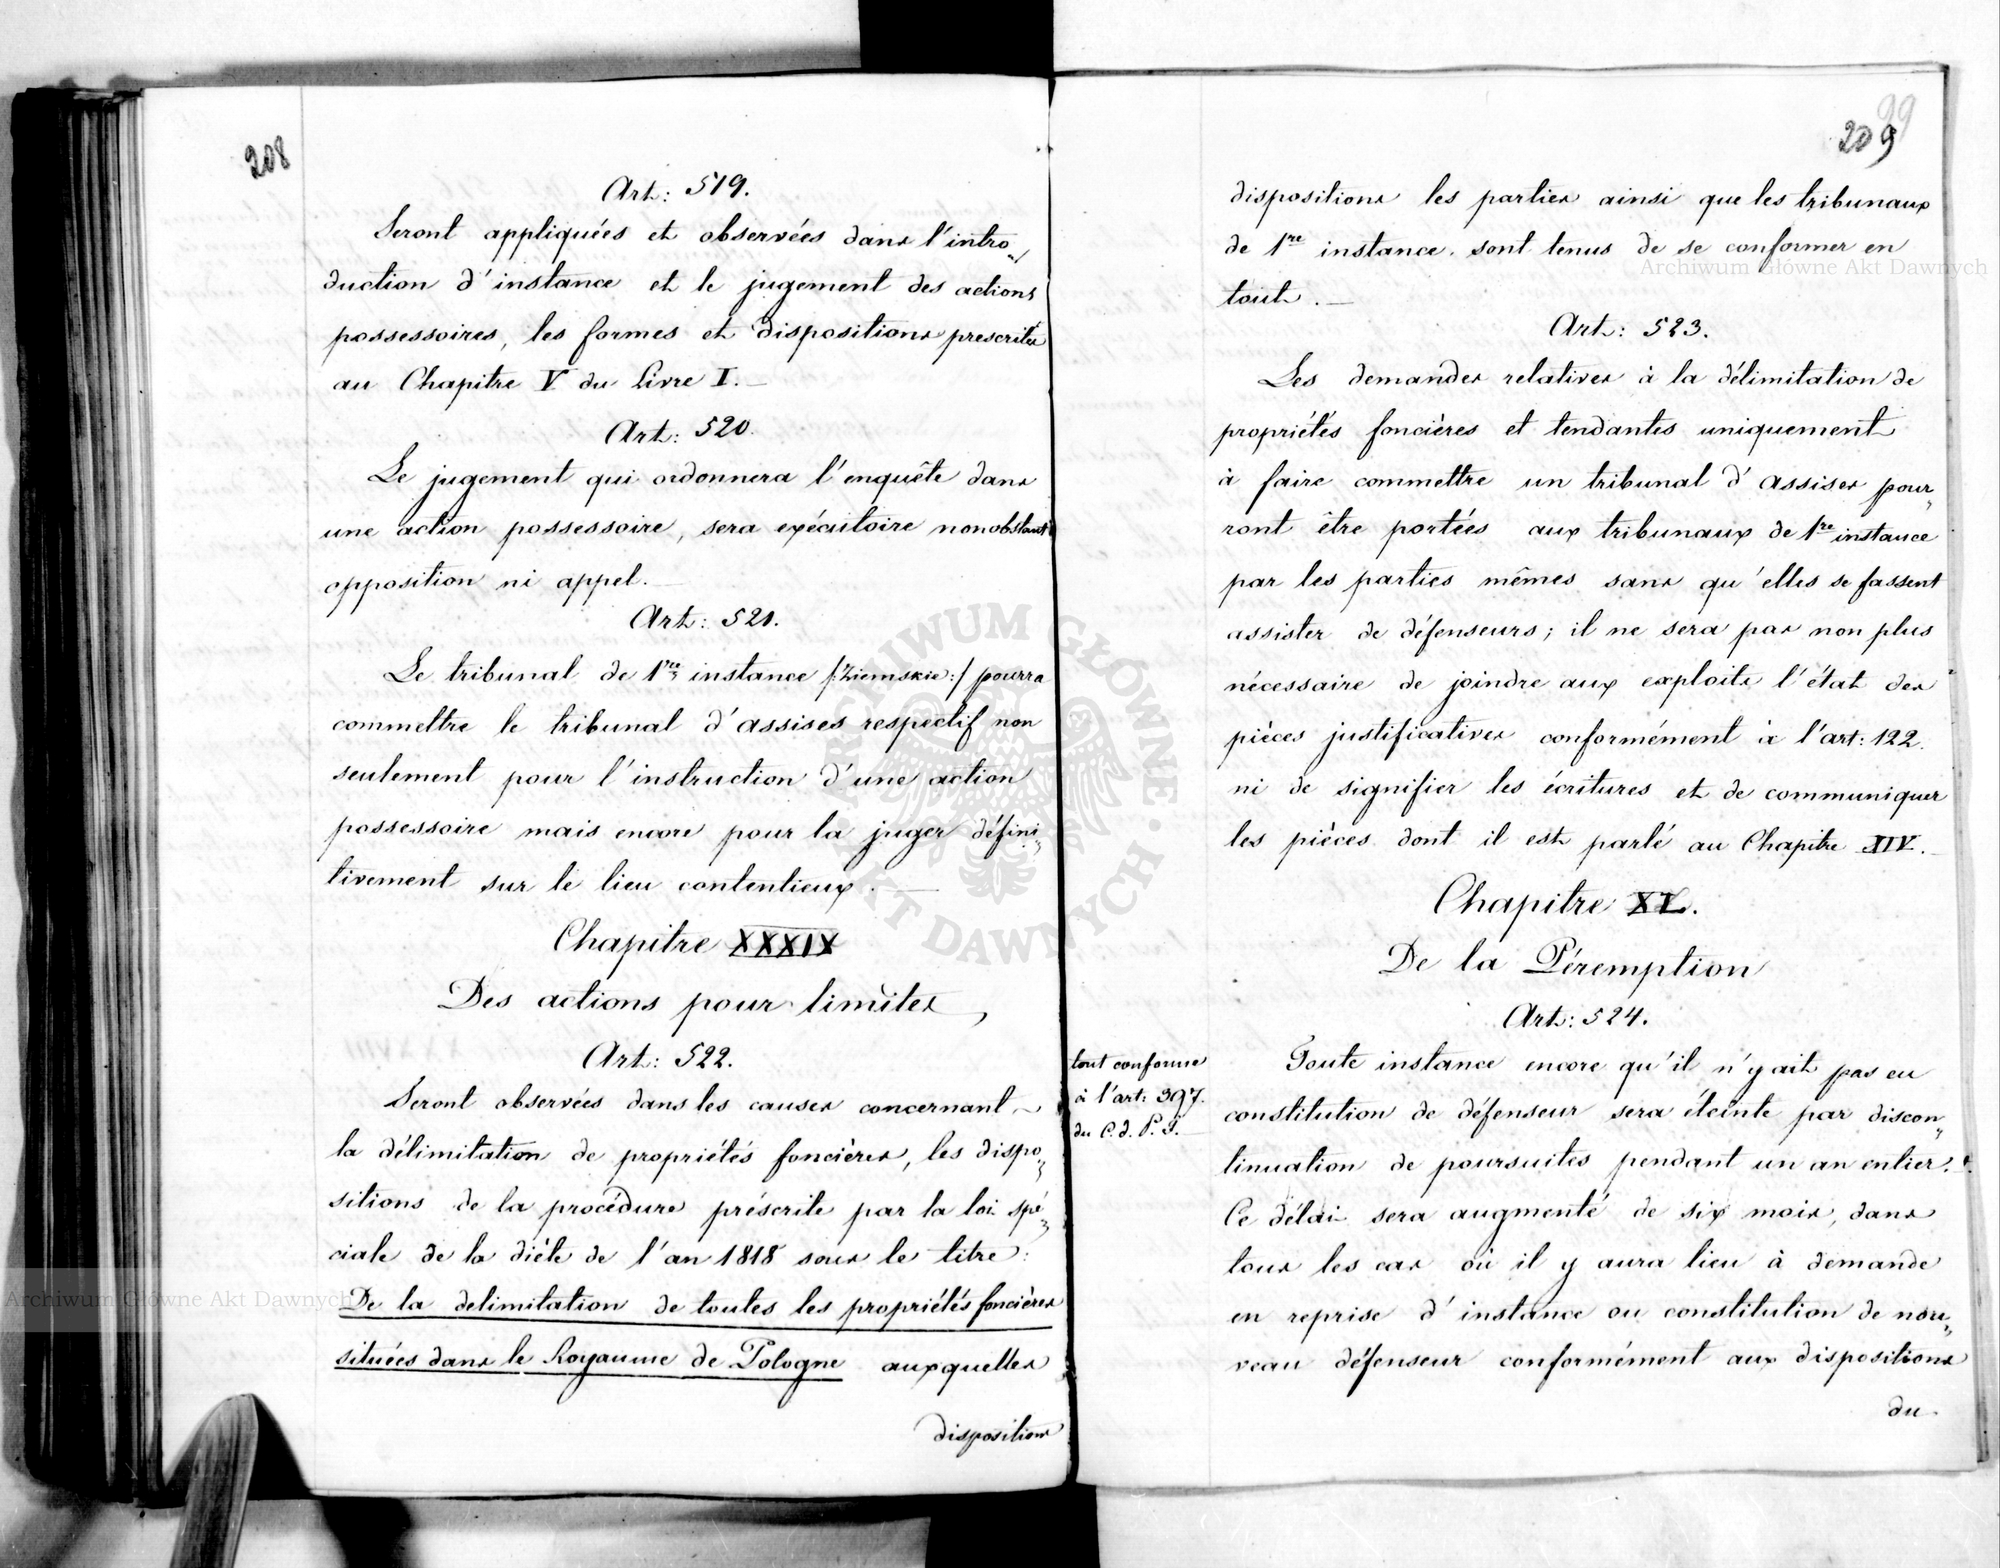 208
Art: 519.
Seront appliquées et observées dans l'intro„
duction d'instance et le jugement des actions
possessoires, les formes et dispositions prescrites
au Chapitre V du Livre I.
Art: 520.
Le jugement qui ordonnera l'enquête dans
une action possessoire, sera exécutoire nonobstant
opposition ni appel.
Art: 521.
Le tribunal de 1re instance /:Ziemskie:/ pourra
commettre le tribunal d'assises respectif non
seulement pour l'instruction d'une action
possessoire mais encore pour la juger défini„
tivement sur le lieu contentieux.
Chapitre XXXIX
Des actions pour limites,
Art: 522.
Seront observées dans les causes concernant
la délimitation de propriétés foncières, les dispo„
sitions de la procédure préscrite par la loi spé„
ciale de la diète de l'an 1818 sous le titre:
De la delimitation de toutes les propriétés foncières
situées dans le Royaume de Pologne auxquelles
dispositions
209
99
dispositions les parties ainsi que les tribunaux
de 1re instance. sont tenus de se conformer en
tout.
Art: 523.
Les demandes relatives à la délimitation de
propriétés foncières et tendantes uniquement
à faire commettre un tribunal d'assises pour„
ront être portées aux tribunaux de 1re instance
par les parties mêmes sans qu'elles se fassent
assister de défenseurs; il ne sera pas non plus
nécessaire de joindre aux exploits l'état des
pièces justificatives conformément à l'art: 122.
ni de signifier les écritures et de communiquer
les pièces dont il est parlé au Chapitre XIV.
Chapitre XL.
De la Péremption
Art: 524.
tout conforme
à l'art: 397.
du C. d. P. F.
Toute instance encore qu'il n'y ait pas eu
constitution de défenseur sera éteinte par discon„
tinuation de poursuites pendant un an entier.
Ce délai sera augmenté de six mois, dans
tous les cas où il y aura lieu à demande
en reprise d'instance ou constitution de nou„
veau défenseur conformément aux dispositions
du
Archiwum Główne Akt Dawnych
Archiwum Główne Akt Dawnych
ARCHIWUM GŁÓWNE AKT DAWNYCH